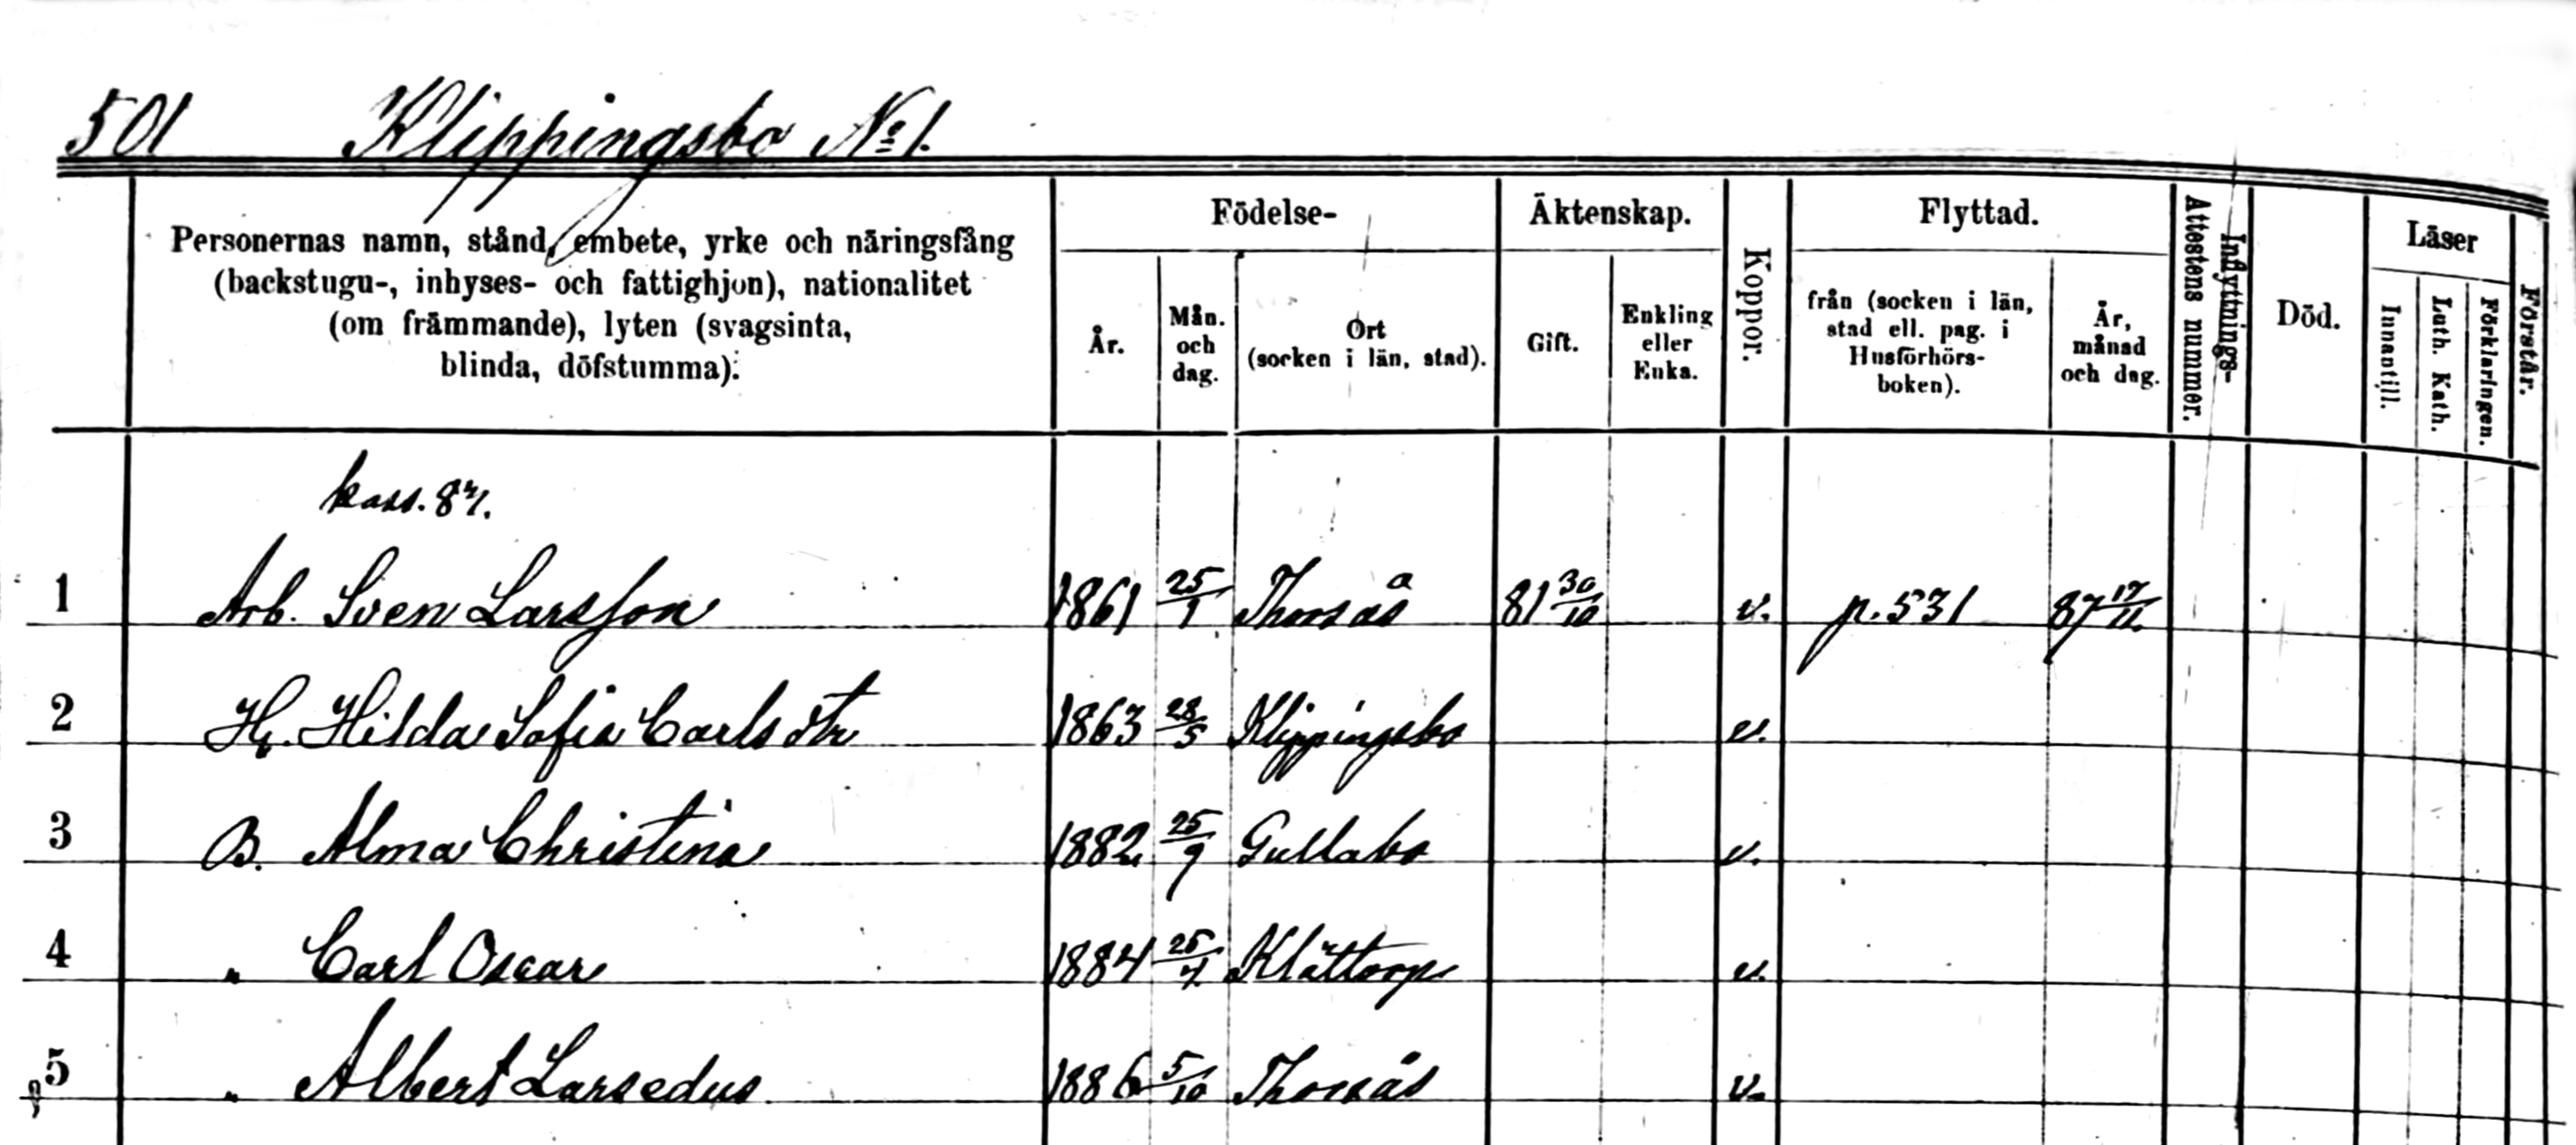 501 Klippingsbo No 1.
Födelse- Äktenskap. Flyttad. Läser
Personernas namn, stånd, embete, yrke och näringsfång
(backstugu-, inhyses- och fattighjon), nationalitet
(om främmande), lyten (svagsinta,
blinda, döfstumma).
År.
Mån.
och
dag.
Ort
(socken i län, stad).
Gift.
Enkling
eller
Enka.
Koppor.
från (socken i län,
stad ell. pag. i
Husförhörs-
boken).
År,
månad
och dag.
Inflyttnings-
Attestens nummer.
Död.
Innantill.
Luth. Kath.
Förklaringen.
Förstår.
kass. 87.
1 Arb. Sven Larsson 1861 25/1 Thorsås 81 30/10 v. p. 531 87 17/11.
2 H. Hilda Sofia Carlsdtr 1863 28/5 Klippingsbo v.
3 B. Alma Christina 1882 25/9 Gullabo v.
4 " Carl Oscar 1884 25/4 Klättorp v.
5 " Albert Larsedus 1886 5/10 Thorsås v.